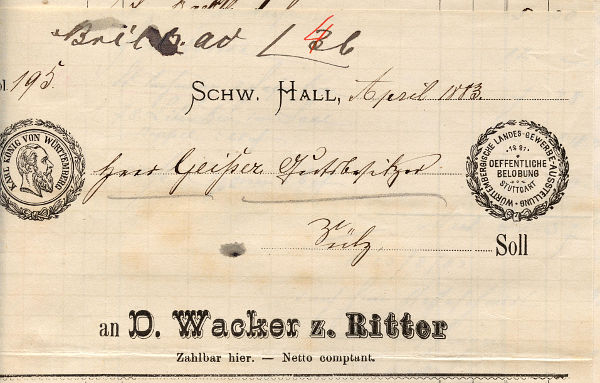 Bril ad 1 36
4
ol. 195.
SCHW. HALL, April 1883.
KARL KÖNIG VON WÜRTTEMBERG
Herr Geißer Gutsbesitzer
WÜRTTEMBERGISCHE LANDES-GEWERBE-AUSSTELLUNG
OEFFENTLICHE
BELOBUNG
STUTTGART
Sülz Soll
an D. Wacker z. Ritter
Zahlbar hier. — Netto comptant.